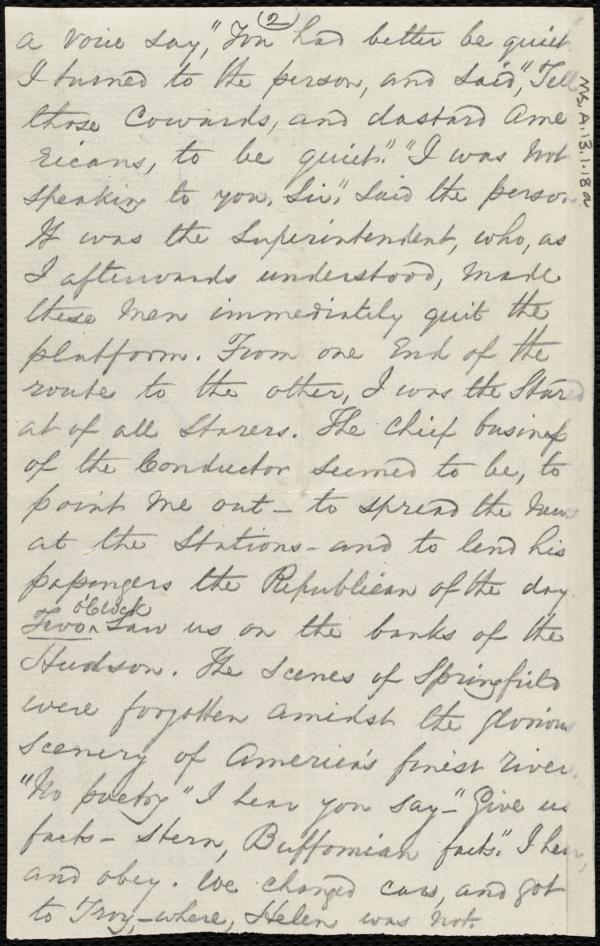 (2)
a voice say, "You had better be quiet.
I turned to the person, and said, "Tell
those Cowards, and dastard Ame
ricans, to be quiet." "I was not
speaking to you, Sir," said the person.
It was the Superintendent, who, as
I afterwards understood, made
these men immediately quit the
platform. From one End of the
route to the other, I was the Stared
at of all Starers. The chief business
of the Conductor seemed to be, to
point me out - to spread the news
at the Stations - and to lend his
passengers the Republican of the day.
Two o'Clock saw us on the banks of the
Hudson. The scenes of Springfield
were forgotten amidst the glorious
scenery of America's finest river.
"No poetry" I hear you say - "Give us
facts - stern, Buffomian facts." I hear,
and obey. We changed cars, and got
to Troy, - where, Helen was not.
Ms. A. 13. 1. 18 a